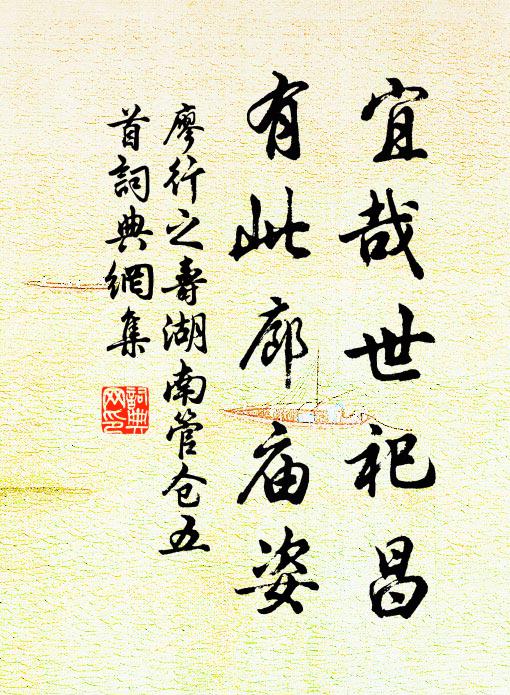 宜哉世祀昌
有此廊庙姿
廖行之壽湖南管仓五
首詞典網集
詞典网印